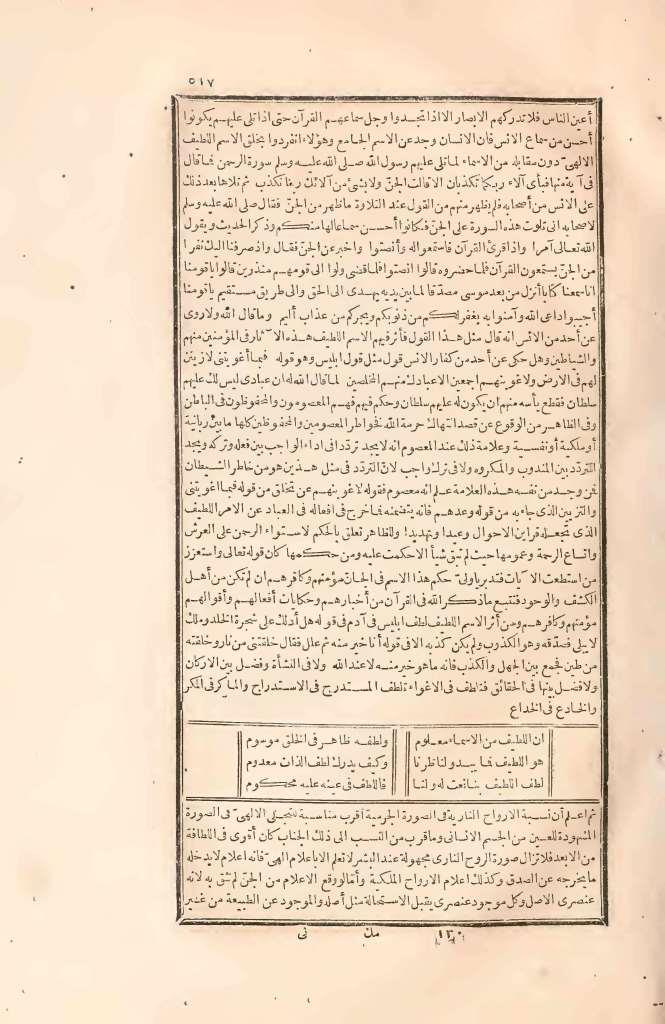 ٥١٧
أعين الناس فلا تدركهم الابصار الا اذا تجسدوا وجل سماعهم القرآن حتى اذا تلى عليهم يكونوا
أحسن من سماع الانس فان الانسان وجد عن الاسم الجامع وهؤلاء انفردوا بخلق الاسم اللطيف
الالهى دون مقابله من الاسماء لما تلى عليهم رسول الله صلى الله عليه وسلم سورة الرحمن فما قال
فى آية منها فبأى آلاء ربكما تكذبان الا قالت الجن ولا بشئ من آلائك ربنا نكذب ثم تلاها بعد ذلك
على الانس من أصحابه فلم يظهر منهم من القول عند التلاوة ما ظهر من الجن فقال صلى الله عليه وسلم
لاصحابه انى تلوت هذه السورة على الجن فكانوا أحسن سماعا لها منكم وذكر الحديث ويقول
الله تعالى آمرا واذا قرئ القرآن فاستمعوا له وأنصتوا واخبر عن الجن فقال واذ صرفنا اليك نفرا
من الجن يستمعون القرآن فلما حضروه قالوا انصتوا فلما قضى ولوا الى قومهم منذرين قالوا يا قومنا
انا سمعنا كتابا أنزل من بعد موسى مصدقا لما بين يديه يهدى الى الحق والى طريق مستقيم يا قومنا
أجيبوا داعى الله وآمنوا به يغفر لكم من ذنوبكم ويجركم من عذاب أليم وما قال الله ولا روى
عن أحد من الانس انه قال مثل هذا القول فأثر فيهم الاسم اللطيف هذه الآثار فى المؤمنين منهم
والشياطين وهل حكى عن أحد من كفار الانس قول مثل قول ابليس وهو قوله فبما أغويتنى لازينن
لهم فى الارض ولاغوينهم اجمعين الا عبادك منهم المخلصين لما قال الله له ان عبادى ليس لك عليهم
سلطان فقطع يأسه منهم ان يكون له عليهم سلطان وحكم فيهم فهم المعصومون والمحفوظون فى الباطن
وفى الظاهر من الوقوع عن قصد انتهاك حرمة الله فخواطر المعصومين والمحفوظين كلها ما بين ربانية
أو ملكية أو نفسية وعلامة ذلك عند المعصوم انه لا يجد ترددا فى اداء الواجب بين فعله وتركه ويجد
التردد بين المندوب والمكروه ولا فى ترك واجب لان التردد فى مثل هذين هو من خاطر الشيطان
فمن وجد من نفسه هذه العلامة علم انه معصوم فقوله لاغوينهم عن تخلق من قوله فبما اغويتنى
والتزيين الذى جاء به من قوله وعدهم فانه يتضمنه فما خرج فى افعاله فى العباد عن الامر اللطيف
الذى تجعله قراين الاحوال وعيدا وتهديدا وللظاهر تعلق بالحكم لاستواء الرحمن على العرش
واتساع الرحمة وعمومها حيث لم تبق شيأ الا حكمت عليه ومن حكمها كان قوله تعالى واستفزز
من استطعت الآيات فتدبر يا ولى حكم هذا الاسم فى الجان مؤمنهم وكافرهم ان لم تكن من أهل
الكشف والوجود فتتبع ما ذكر الله فى القرآن من أخبارهم وحكايات أفعالهم وأقوالهم
مؤمنهم وكافرهم ومن أثر الاسم اللطيف لطف ابليس فى آدم فى قوله هل أدلك على شجرة الخلد وملك
لا يبلى فصدقه وهو الكذوب ولم يكن كذبه الا فى قوله أنا خير منه ثم علل فقال خلقتنى من نار وخلقته
من طين فجمع بين الجهل والكذب فانه ما هو خير منه لا عند الله ولا فى النشأة وفضل بين الاركان
ولا فضل بينها فى الحقائق فتلطف فى الاغواء تلطف المستدرج فى الاستدراج والماكر فى المكر
والخادع فى الخداع
ان اللطيف من الاسماء معلوم ولطفه ظاهر فى الخلق موسوم
هو اللطيف فما يبدو لنا ظرنا وكيف يدرك لطف الذات معدوم
لطف اللطيف بنا نعت له ولنا فاللطف فى عينه عليه محكوم
ثم اعلم أن نسبة الارواح النارية فى الصورة الجرمية أقرب مناسبة للتجلى الالهى فى الصورة
المشهودة للعين من الجسم الانسانى وما قرب من النسب الى ذلك الجناب كان أقوى فى اللطافة
من الابعد فلا تزال صورة الروح النارى مجهولة عند البشر لا تعلم الا باعلام الهى فانه اعلام لا يدخله
ما يخرجه عن الصدق وكذلك اعلام الارواح الملكية وأما لو وقع الاعلام من الجن لم نثق به لانه
عنصرى الاصل وكل موجود عنصرى يقبل الاستحالة مثل أصله والموجود عن الطبيعة من غير
١٣٠ مك نى